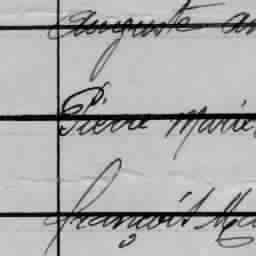 auguste
Pierre Marie
François Ma